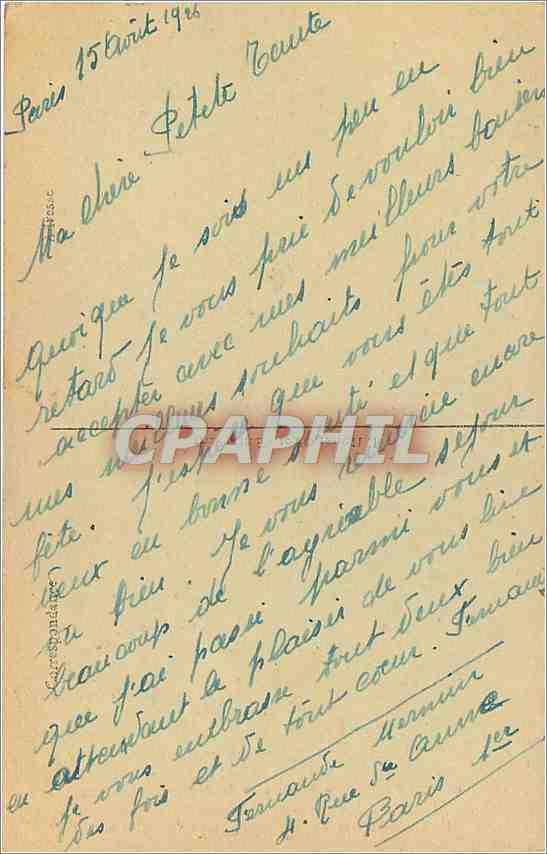 Paris 15 Août 1926
Ma chère Petite Tante
Quoique je sois un peu en
retard je vous prie de vouloir bien
accepter avec mes meilleurs baisers
mes meilleurs souhaits pour votre
fête. J'espère que vous êtes tout
deux en bonne santé et que tout
va bien. Je vous remercie encore
beaucoup de l'agréable séjour
que j'ai passé parmi vous et
en attendant le plaisir de vous lire
je vous embrasse tout deux bien
des fois et de tout coeur. Fernande
Fernande
4. Rue Ste Anne
Paris 1er
Correspondance
Adresse
CPAPHIL